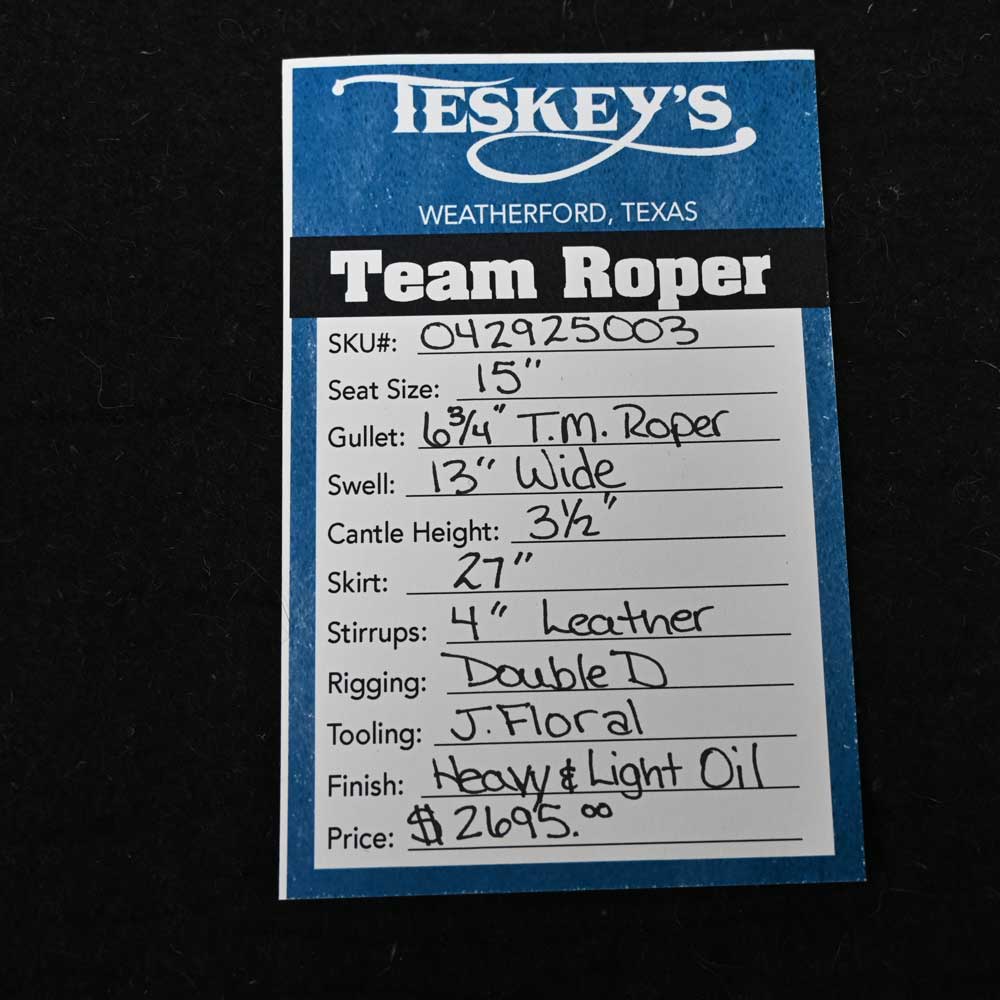 TESKEY'S
WEATHERFORD, TEXAS
Team Roper
SKU#: 042925003
Seat Size: 15"
Gullet: 6 3/4" T.M. Roper
Swell: 13" Wide
Cantle Height: 3 1/2"
Skirt: 27"
Stirrups: 4" Leather
Rigging: Double D
Tooling: J. Floral
Finish: Heavy & Light Oil
Price: $2695.00